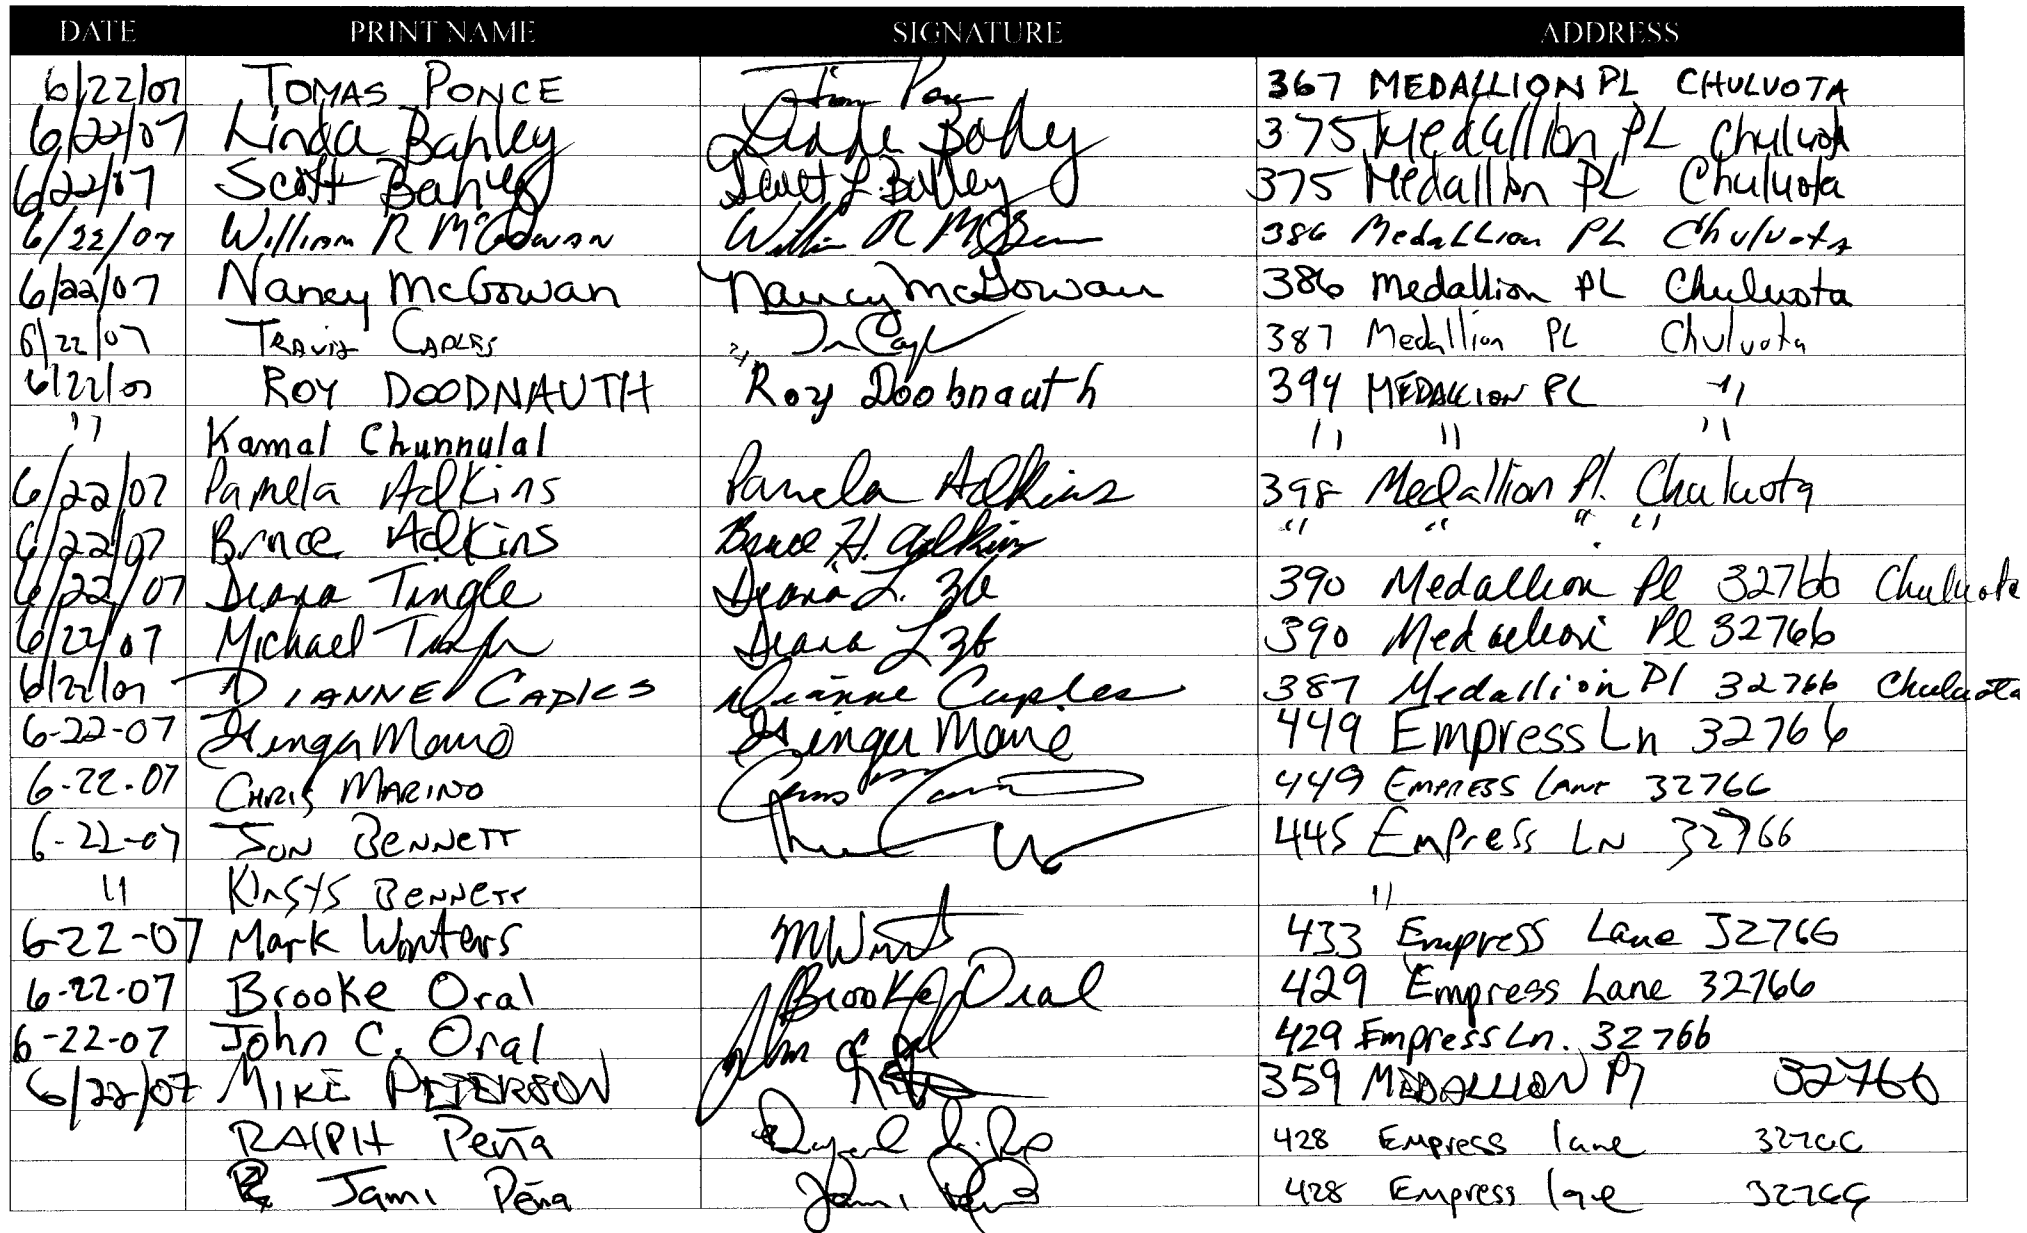 DATE PRINT NAME SIGNATURE ADDRESS
6/22/07 TOMAS PONCE 367 MEDALLION PL CHULUOTA
6/22/07 Linda Bahley 375 Medallion PL Chuluota
6/22/07 Scott Bahley Scott L. Bahley 375 Medallion PL Chuluota
6/22/07 William R McGowan William R McGowan 386 Medallion PL Chuluota
6/22/07 Nancy McGowan Nancy McGowan 386 Medallion PL Chuluota
6/22/07 Travis Caples 387 Medallion PL Chuluota
6/22/07 ROY DOODNAUTH Roy Doobnauth 394 MEDALLION PL "
" Kamal Chunnulal " " "
6/22/07 Pamela Adkins Pamela Adkins 398 Medallion Pl. Chuluota
6/22/07 Bruce Adkins Bruce H. Adkins " " " "
6/22/07 Diana Tingle Diana L. 390 Medallion Pl 32766 Chuluota
6/22/07 Michael Diana L 390 Medallion Pl 32766
6/22/07 DIANNE CAPLES Dianne Caples 387 Medallion Pl 32766 Chuluota
6-22-07 449 Empress Ln 32766
6-22-07 CHRIS MARINO 449 EMPRESS LANE 32766
6-22-07 JON BENNETT 445 EmPress LN 32766
" BENNETT "
6-22-07 Mark Winters 433 Empress Lane 32766
6-22-07 Brooke Oral Brooke Oral 429 Empress Lane 32766
6-22-07 John C. Oral 429 Empress Ln. 32766
6/22/07 MIKE PETERSON 359 MEDALLION Pl 32766
RALPH Peña 428 Empress lane 32766
Jami Peña Jami Peña 428 Empress lane 32766